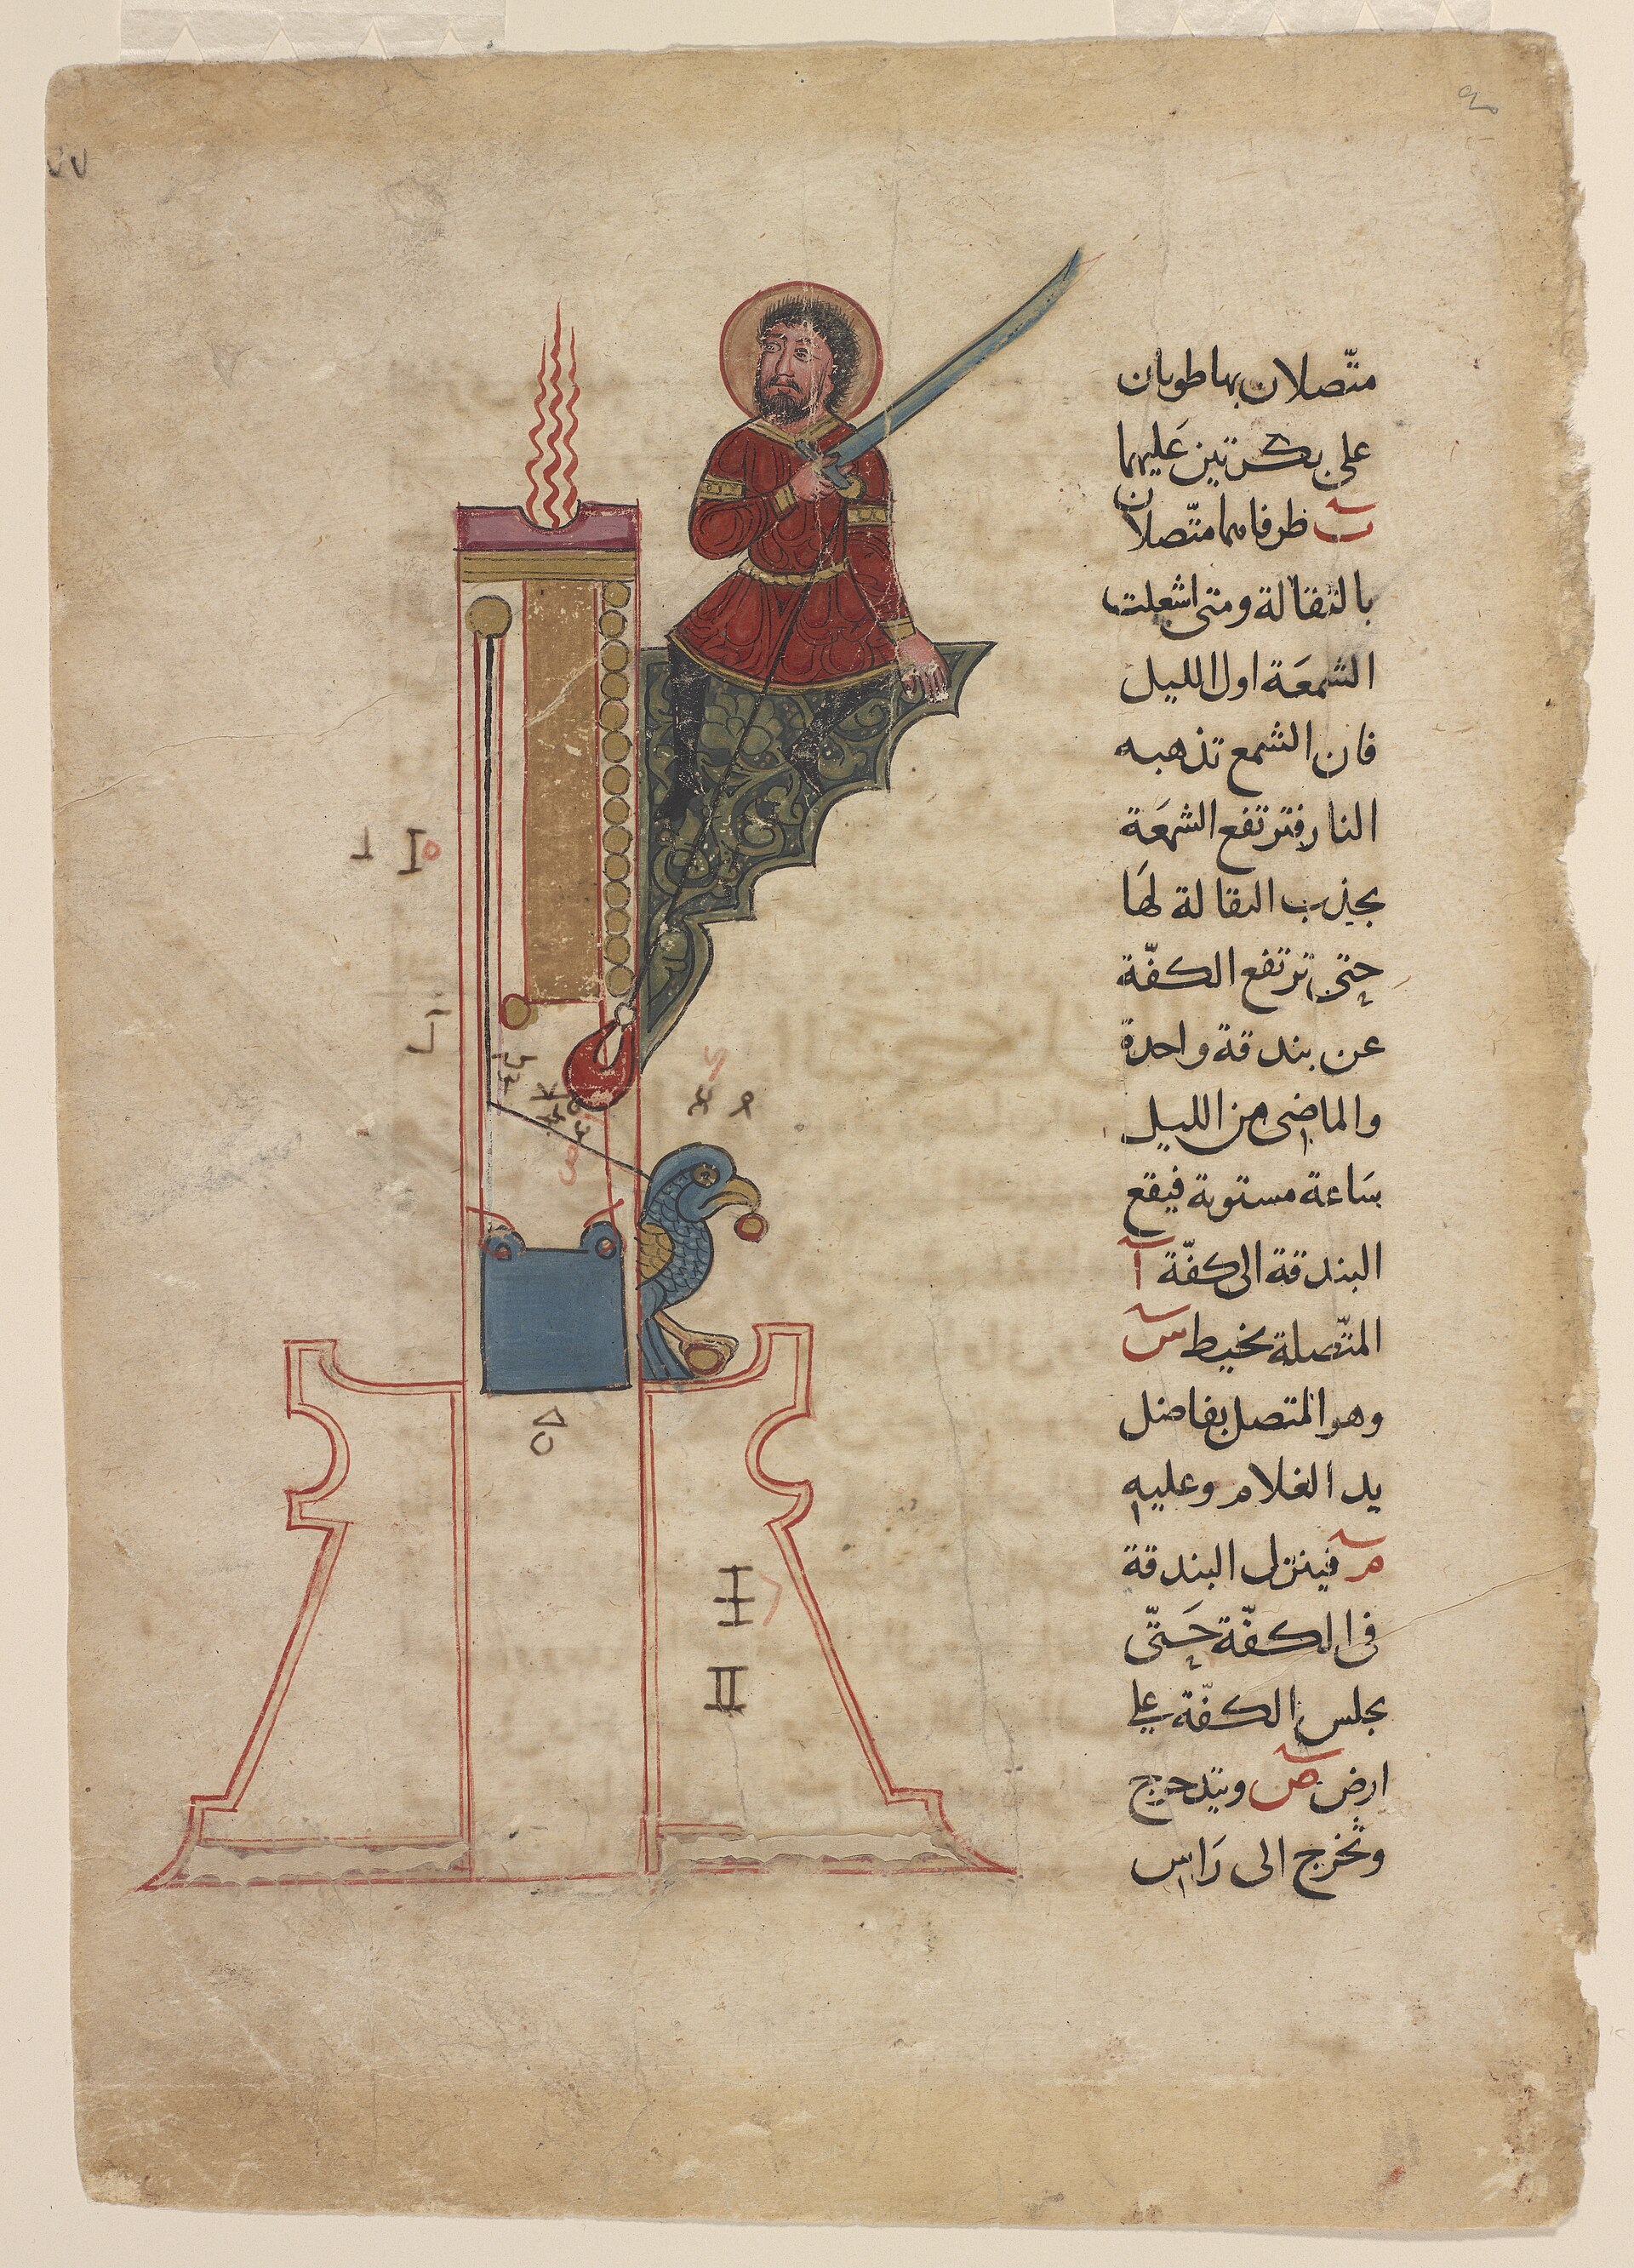 متّصلان بهما طويلان
على بكرتين عَليهما
ٮ ظرفاهما متّصلان
بالثقالة ومتى اشعلت
الشمعَة اول الليل
فان الشمع تذهبه
النار فترتفع الشمعَة
بجذب الثقالة لهَا
حتى ترتفع الكفّة
عن بندقة واحدة
والماضى من الليل
سَاعة مستوية فيقع
البندقة الى كفّة آ
المتّصلة بخيط س
وهو المتصل بفاضل
يد الغلام وعليه
م فينزل البندقة
فى الكفّة حَتّى
يجلس الكفّة على
ارض ص ويتدحرج
وتخرج الى رَاس